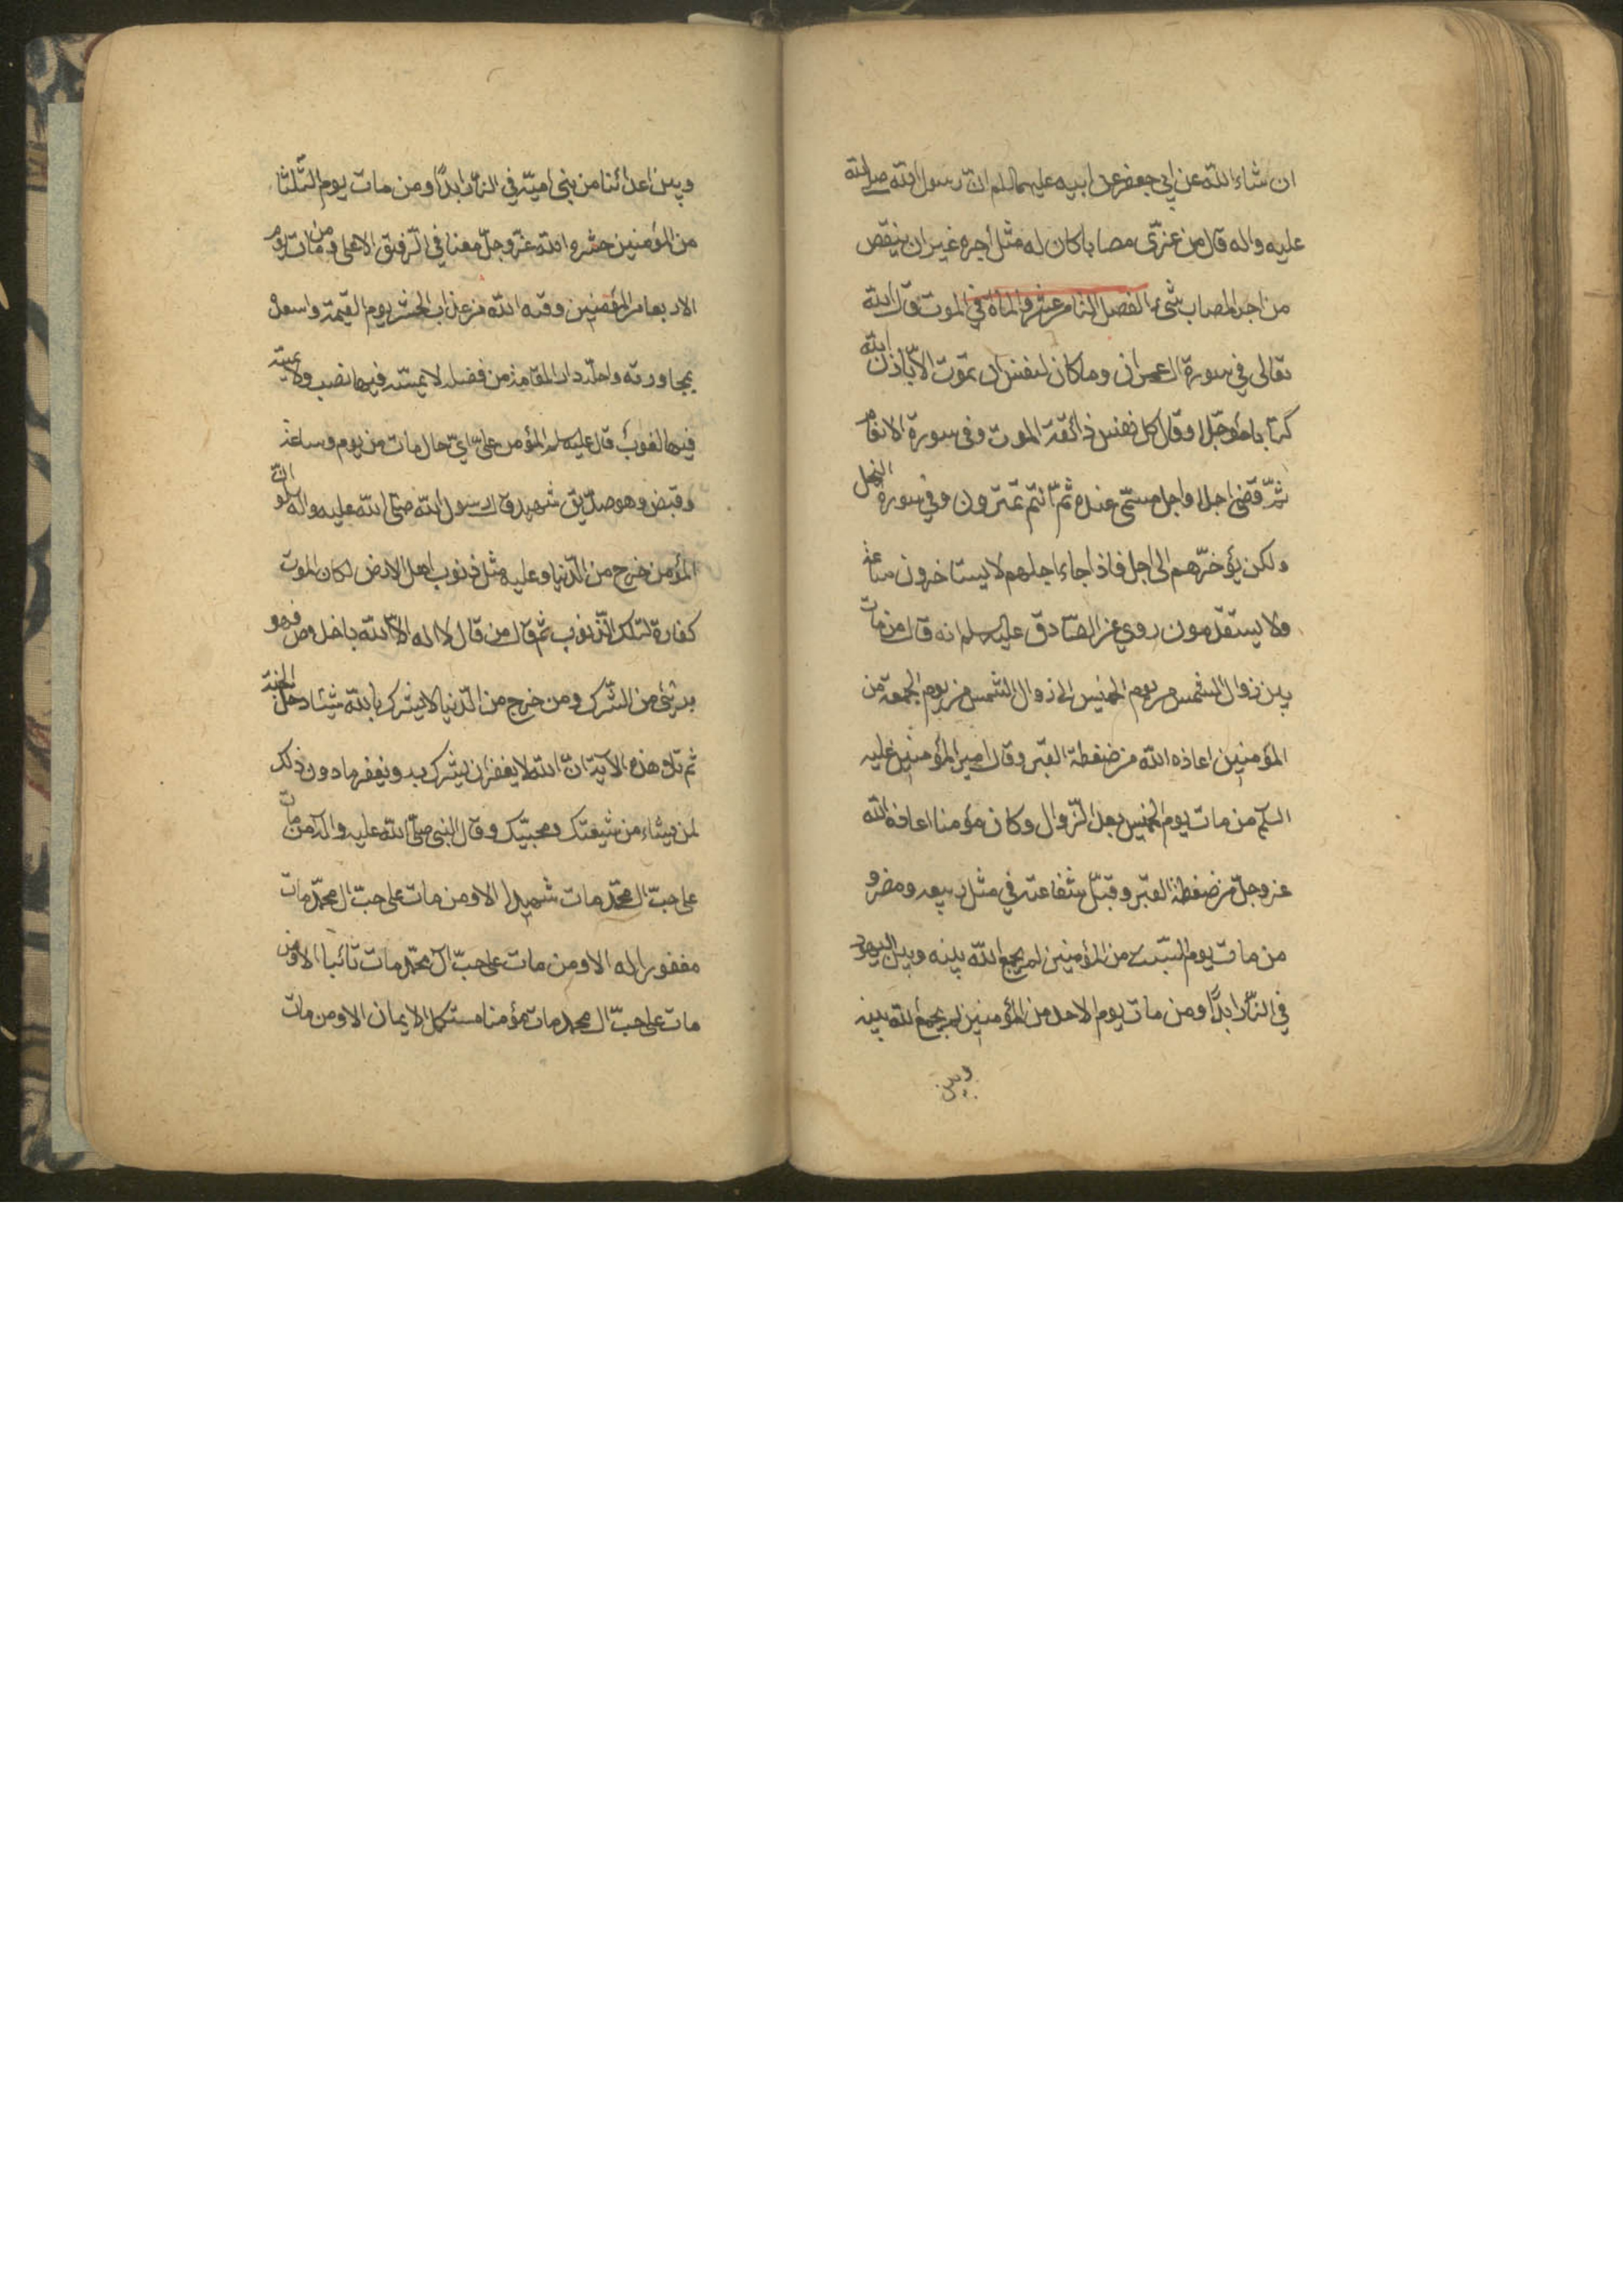 ان شاء الله عن ابي جعفر عن ابيه عليهما السلم ان رسول الله صلى الله
عليه واله قال من عزّى مصابا كان له مثل اجره غير ان ينقص
من اجر المصاب شئ الفصل الثامن عشر والمأة في الموت قال الله
تعالى في سورة ال عمران وما كان لنفس ان تموت الا باذن الله
كتابا مؤجّلا وقال كل نفس ذائقة الموت وفي سورة الانعام
ثمّ قضى اجلا واجل مسمّى عنده ثمّ انتم تمترون وفي سورة النحل
ولكن يؤخّرهم الى اجل فاذا جاء اجلهم لا يستاخرون ساعة
ولا يستقدمون روي عن الصّادق عليه السلم انه قال من مات
بين زوال الشمس من يوم الخميس الى زوال الشمس من يوم الجمعة من
المؤمنين اعاذه الله من ضغطة القبر وقال امير المؤمنين عليه
السلم من مات يوم الخميس بعد الزّوال وكان مؤمنا اعاذه الله
عز وجلّ من ضغطة القبر وقبّل شفاعته في مثل ربيعه ومضر و
من مات يوم السّبت من المؤمنين لم يجمع الله بينه وبين اليهود
في النّار ابدًا ومن مات يوم الاحد من المؤمنين لم يجمع الله بينه
وبين
وبين اعدائنا من بني اميّة في النّار ابدًا ومن مات يوم الثّلثا
من المؤمنين حشره الله عزّ وجلّ معنا في الرّفيق الاعلى ومن مات يوم
الاربعا من المؤمنين وقه الله من عذاب الحشر يوم القيمة واسعده
بمجاورته واحلّه دار المقامة من فضله لا يمسّه فيها نصب ولا يمسّه
فيها لغوب قال عليه السلم المؤمن على اي حال مات من يوم وساعة
وقبض وهو صدّيق شهيد قال رسول الله صلى الله عليه واله لو ان
المؤمن خرج من الدّنيا وعليه مثل ذنوب اهل الارض لكان الموت
كفارة لتلك الذّنوب ثم قال من قال لا اله الا الله باخلاص فهو
برئ من الشّرك ومن خرج من الدّنيا لا يشرك بالله شيئا دخل الجنة
ثم تلا هذه الآية انّ الله لا يغفر ان يشرك به ويغفر ما دون ذلك
لمن يشاء من شيعتك ومحبّيك وقال النبي صلّى الله عليه واله من مات
على حبّ ال محمّد مات شهيدا الا ومن مات على حبّ ال محمّد مات
مغفورا له الا ومن مات على حبّ ال محمّد مات تائبا الا ومن
مات على حبّ ال محمد مات مؤمنا مستكمل الايمان الا ومن مات